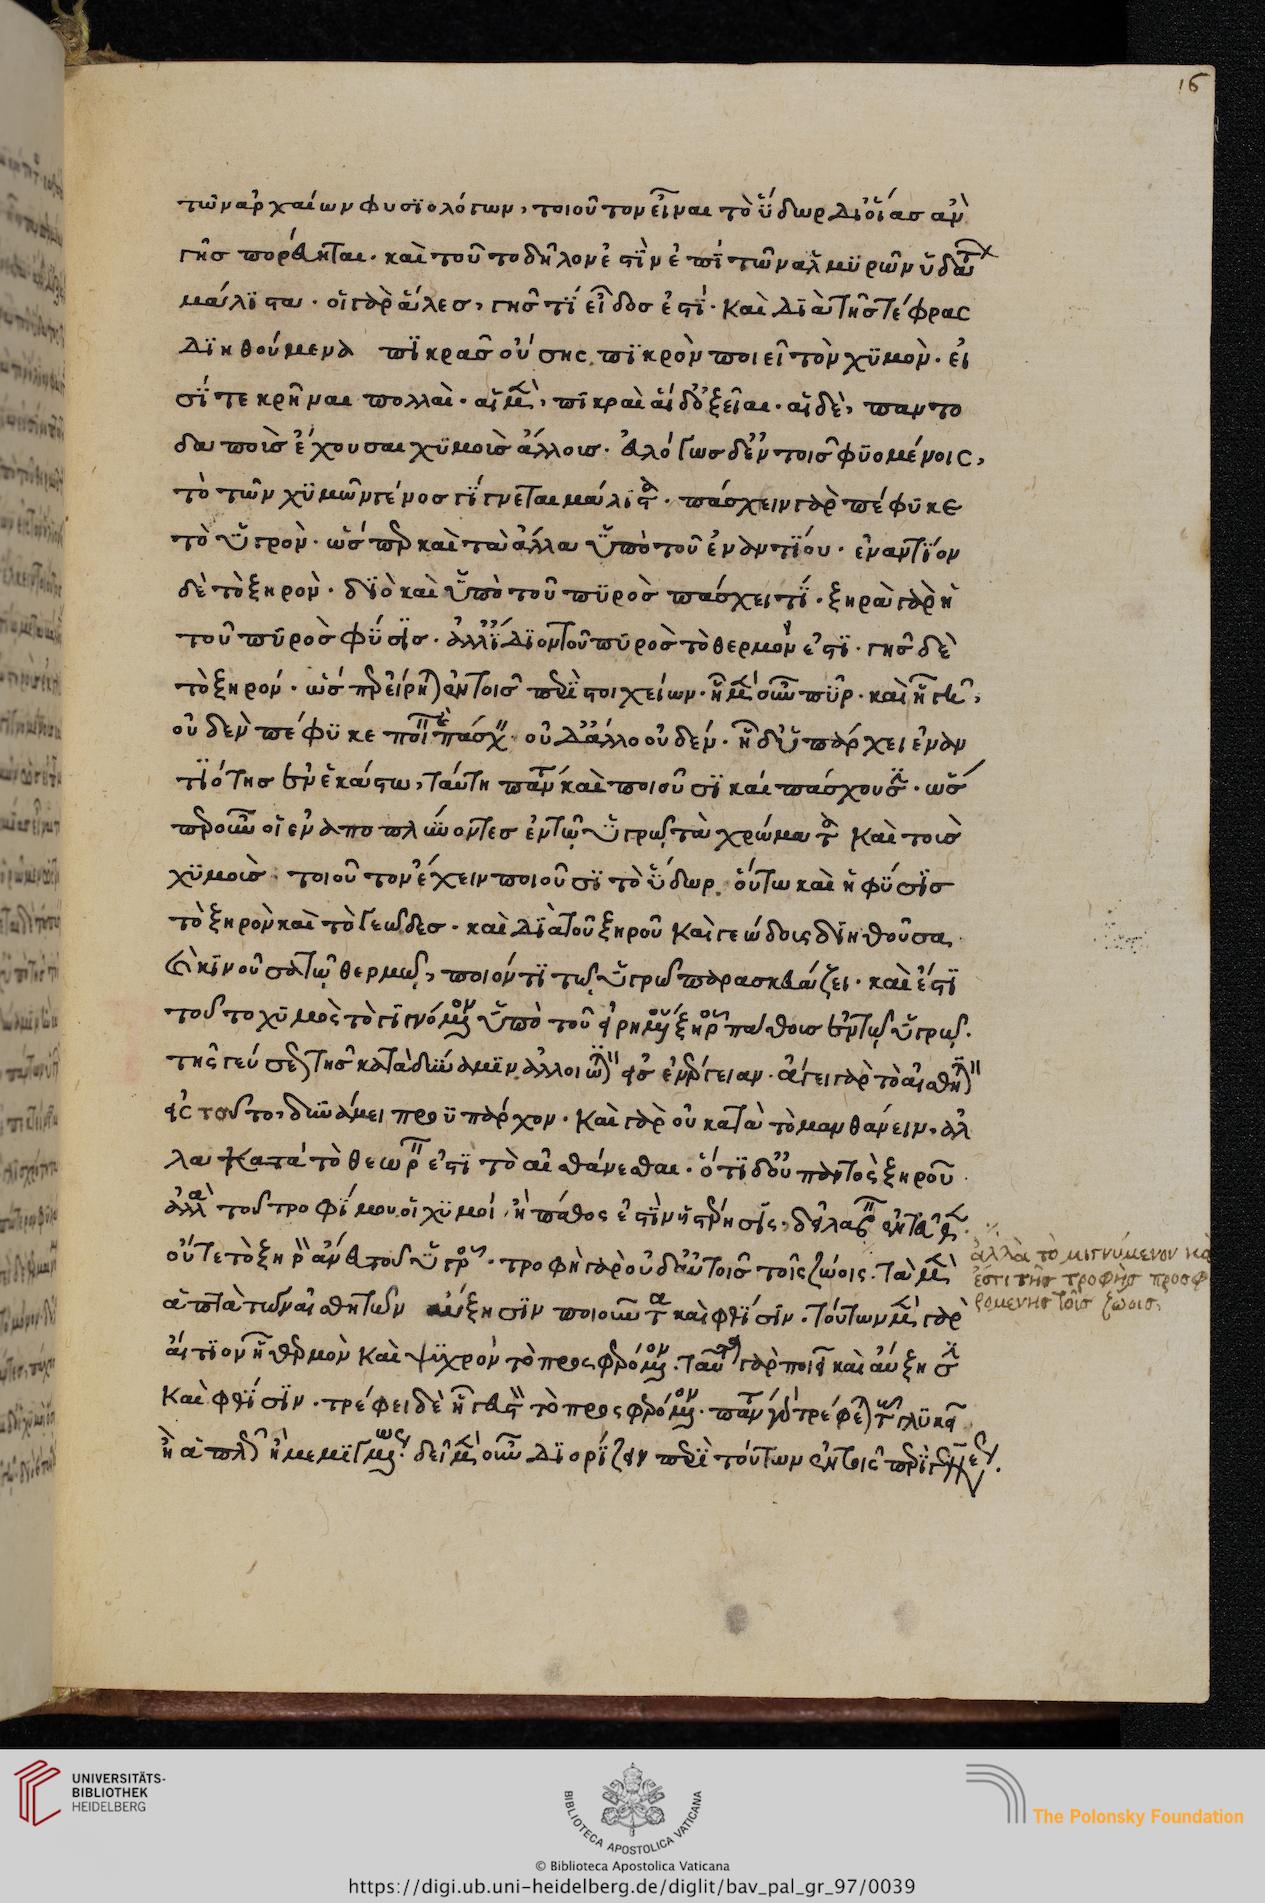 16
τῶν ἀρχαίων φυσϊολόγων, τοιοῦτον εἶναι τὸ ὕδωρ δι' οἵας ἂν
γῆς πορεύηται. καὶ τοῦτο δῆλον ἐστῒν ἐπῒ τῶν ἁλμϋρῶν ὑδάτων
μάλϊστα. οἱ γὰρ ἅλες, γῆς τῒ εἶδος ἐστΐ. καὶ δϊὰ τῆς τέφρας
δϊηθούμενα πϊκρᾶς οὔσης πϊκρὸν ποιεῖ τὸν χϋμὸν. εἰ
σΐ τε κρῆναι πολλαὶ. αἱ μὲν, πικραὶ αἱ δ' ὀξεῖαι. αἱ δὲ, παντο
δαποὺς ἔχουσαι χϋμοὺς ἄλλους. εὐλόγως δ' ἐν τοῖς φϋομένοις,
τὸ τῶν χϋμῶν γένος γΐγνεται μάλϊστα. πάσχειν γὰρ πέφϋκε
τὸ ὑγρὸν. ὥσπερ καὶ τὰ ἄλλα ὑπὸ τοῦ ἐναντΐου. ἐναντΐον
δὲ τὸ ξηρὸν. δϊὸ καὶ ὑπὸ τοῦ πϋρὸς πάσχει τΐ. ξηρὰ γὰρ ἡ
τοῦ πϋρὸς φϋσϊς. ἀλλ' ἴδϊον τοῦ πϋρὸς τὸ θερμόν ἐστϊ. γῆς δὲ
τὸ ξηρόν. ὥσπερ εἴρηται ἐν τοῖς περῒ στοιχείων. ᾗ μὲν οὖν πῦρ. καὶ ᾗ γῆ,
οὐδὲν πέφϋκε ποιεῖν καὶ πάσχειν. οὐδ' ἄλλο οὐδέν. ᾗ δ' ὑπάρχει ἐναν
τϊότης ἐν ἑκάστω, ταύτη πάντα καὶ ποιοῦσϊ καὶ πάσχουσιν. ὥσ
περ οὖν οἱ ἐναποπλύνοντες ἐν τῶ ὑγρῶ τὰ χρώματα καὶ τοὺς
χϋμοὺς τοιοῦτον ἔχειν ποιοῦσϊ τὸ ὕδωρ. οὕτω καὶ ἡ φϋσϊς
τὸ ξηρὸν καὶ τὸ γεῶδες. καὶ δϊὰ τοῦ ξηροῦ καὶ γεώδους δϊηθοῦσα,
καὶ κϊνοῦσα τῶ θερμῶ, ποιόν τϊ τὸ ὑγρὸν παρασκευάζει. καὶ ἔστϊ
τοῦτο χϋμὸς τὸ γϊγνόμενον ὑπὸ τοῦ εἰρημένου ξηροῦ πάθους ἐν τῶ ὑγρῶ.
τῆς γεύσεως τῆς κατὰ δύναμϊν ἀλλοιωτικὸν εἰς ἐνέργειαν. ἄγει γὰρ τὸ αἰσθητικὸν
εἰς τοῦτο, δυνάμει προϋπάρχον. καὶ γὰρ οὐ κατὰ τὸ μανθάνειν, ἀλ
λὰ κατὰ τὸ θεωρεῖν ἐστϊ τὸ αἰσθάνεσθαι. ὅτϊ δ' οὐ παντὸς ξηροῦ
ἀλλὰ τοῦ τροφΐμου οἱ χϋμοί, ἢ πάθος ἐστῒν ἢ στέρησϊς, δεῖ λαβεῖν ἐντεῦθεν.
οὔτε τὸ ξηρὸν ἄνευ τοῦ ὑγροῦ. τροφὴ γὰρ οὐδ' αὐτοῖς τοῖς ζώοις. τὰ μὲν
ἁπτὰ τῶν αἰσθητῶν αὔξησϊν ποιοῦντα καὶ φθΐσϊν. τούτων μὲν γὰρ
αἴτϊον ᾗ θερμὸν καὶ ψϋχρόν τὸ προσφερόμενον. ταῦτα γὰρ ποιεῖ καὶ αὔξησιν
καὶ φθΐσϊν. τρέφει δὲ ᾗ γευστὸν τὸ προσφερόμενον. πάντα γὰρ τρέφεται τῶ γλϋκεῖ
ἢ ἁπλῶς ἢ μεμϊγμένως. δεῖ μὲν οὖν δϊορΐζειν περῒ τούτων ἐν τοῖς περῒ γενέσεως.
ἀλλὰ τὸ μιγνύμενον καὶ
ἔστι τῆς τροφῆς προσφε
ρομένης τοῖς ζώοις.
UNIVERSITÄTS-
BIBLIOTHEK
HEIDELBERG
BIBLIOTECA APOSTOLICA VATICANA
The Polonsky Foundation
© Biblioteca Apostolica Vaticana
https://digi.ub.uni-heidelberg.de/diglit/bav_pal_gr_97/0039